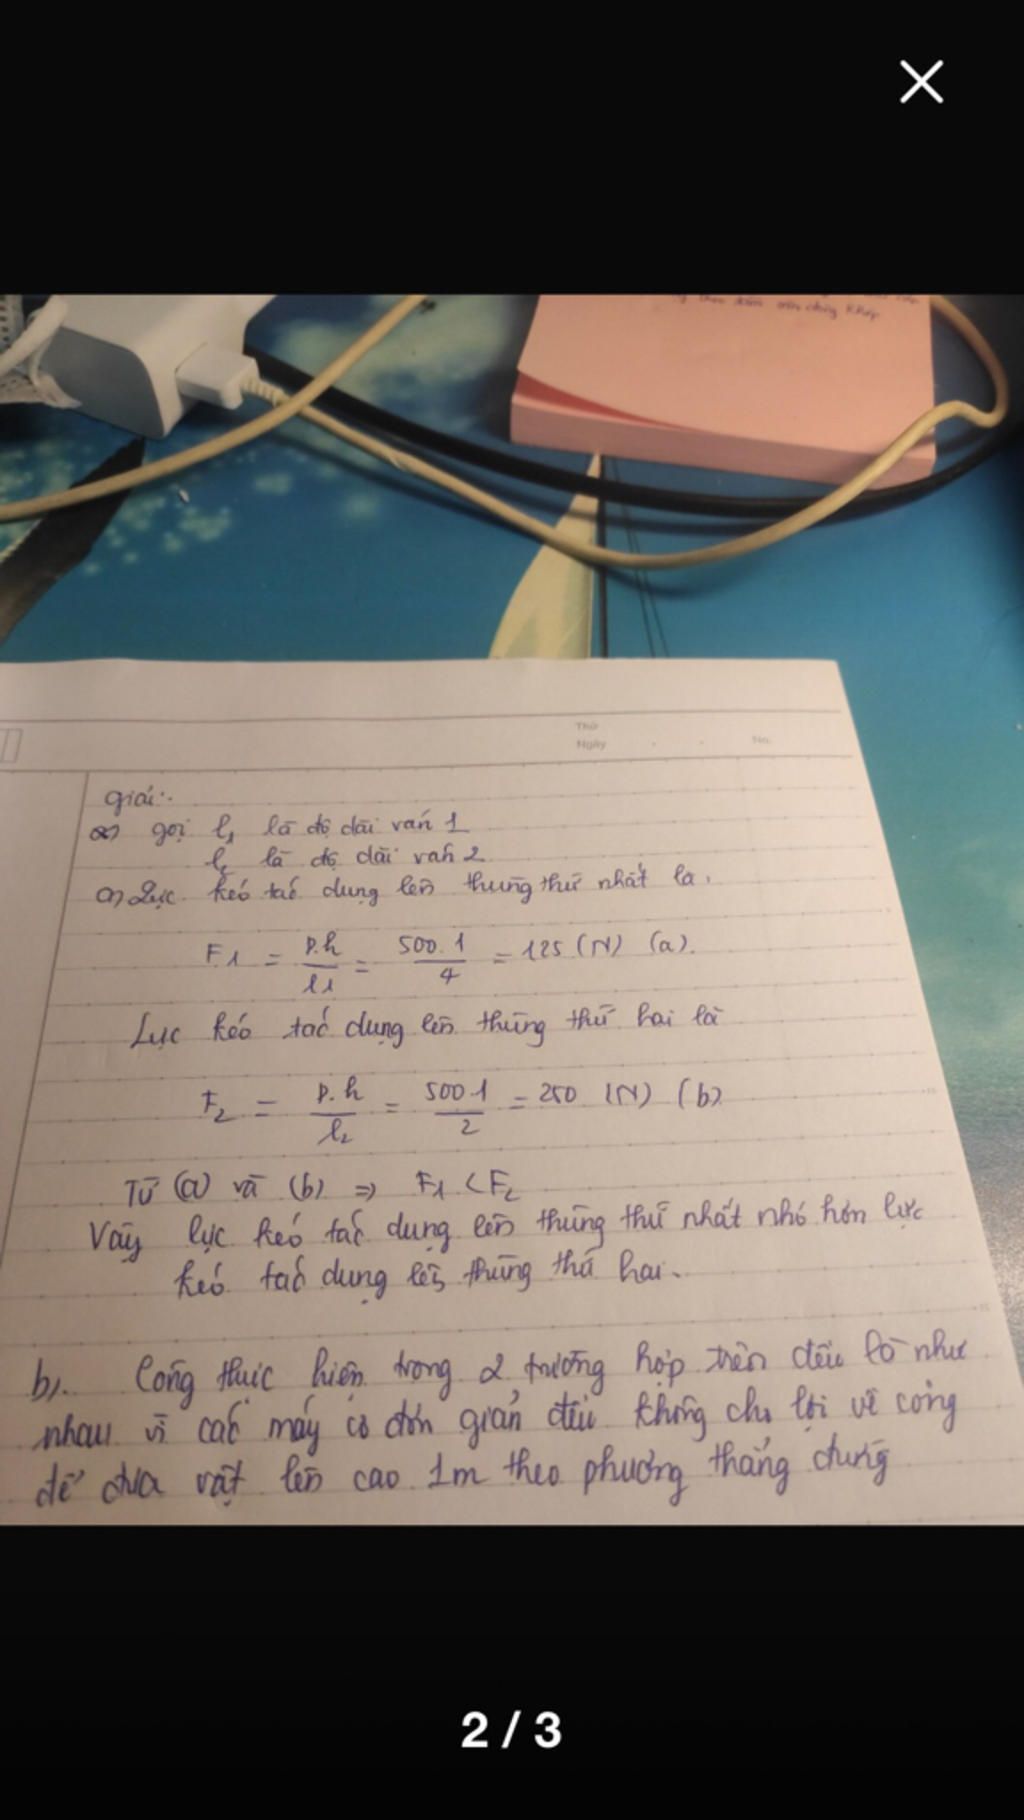 theo đám mây cùng khớp
Thứ
Ngày
No.
giải:
gọi l₁ là độ dài ván 1
l₂ là độ dài ván 2
a) Lực kéo tác dụng lên thùng thứ nhất là.
F1 = P.h/l1 = 500.1/4 = 125 (N) (a).
Lực kéo tác dụng lên thùng thứ hai là
F2 = P.h/l2 = 500.1/2 = 250 (N) (b)
Từ (a) và (b) => F1 < F2
Vậy lực kéo tác dụng lên thùng thứ nhất nhỏ hơn lực
kéo tác dụng lên thùng thứ hai.
b). Công thực hiện trong 2 trường hợp trên đều là như
nhau vì các máy cơ đơn giản đều không cho lợi về công
để đưa vật lên cao 1m theo phương thẳng đứng
2 / 3